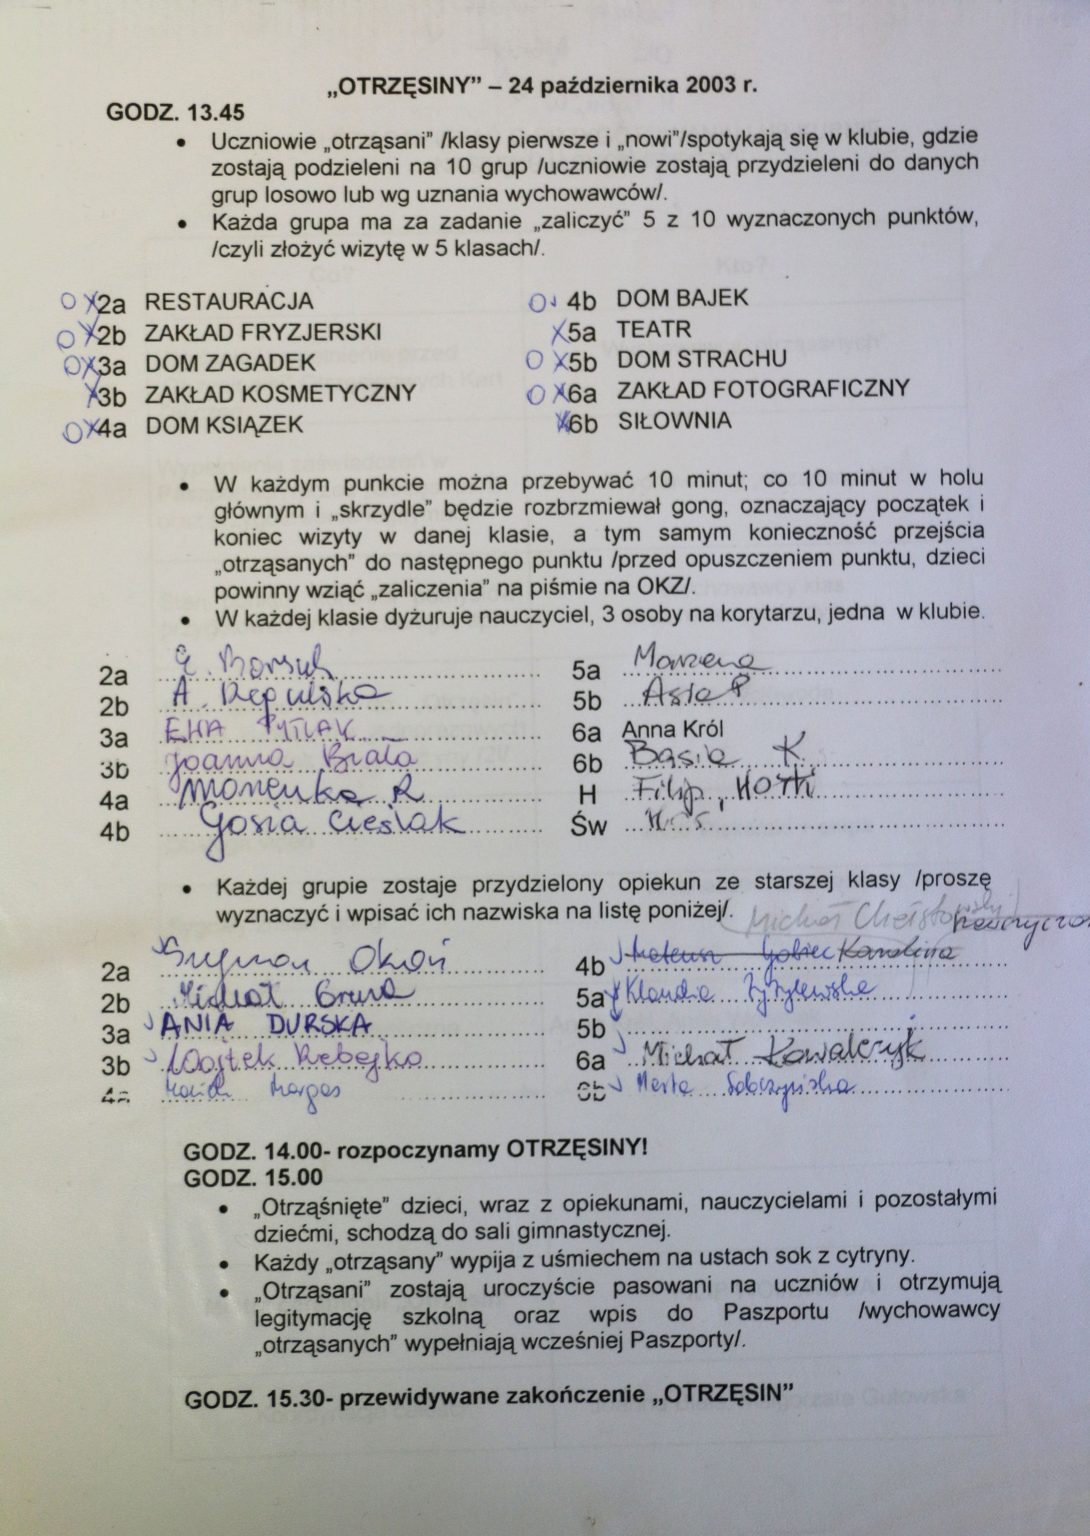 „OTRZĘSINY” – 24 października 2003 r.
GODZ. 13.45
• Uczniowie „otrząsani” /klasy pierwsze i „nowi”/spotykają się w klubie, gdzie
zostają podzieleni na 10 grup /uczniowie zostają przydzieleni do danych
grup losowo lub wg uznania wychowawców/.
• Każda grupa ma za zadanie „zaliczyć” 5 z 10 wyznaczonych punktów,
/czyli złożyć wizytę w 5 klasach/.
2a RESTAURACJA
2b ZAKŁAD FRYZJERSKI
3a DOM ZAGADEK
3b ZAKŁAD KOSMETYCZNY
4a DOM KSIĄZEK
4b DOM BAJEK
5a TEATR
5b DOM STRACHU
6a ZAKŁAD FOTOGRAFICZNY
6b SIŁOWNIA
• W każdym punkcie można przebywać 10 minut; co 10 minut w holu
głównym i „skrzydle” będzie rozbrzmiewał gong, oznaczający początek i
koniec wizyty w danej klasie, a tym samym konieczność przejścia
„otrząsanych” do następnego punktu /przed opuszczeniem punktu, dzieci
powinny wziąć „zaliczenia” na piśmie na OKZ/.
• W każdej klasie dyżuruje nauczyciel, 3 osoby na korytarzu, jedna w klubie.
2a
2b A.
3a
3b Joanna Biała
4a R
4b Gosia Cieślak
5a Marzena
5b Asia P
6a Anna Król
6b Basia K.
H Filip,
Św
• Każdej grupie zostaje przydzielony opiekun ze starszej klasy /proszę
wyznaczyć i wpisać ich nazwiska na listę poniżej/.
Michał
2a Szymon Okoń
2b Michał
3a ANIA DURSKA
3b Wojtek
4a
4b Mateusz Karolina
5a Klaudia
5b
6a Michał Kowalczyk
6b Marta Sobczyńska
GODZ. 14.00- rozpoczynamy OTRZĘSINY!
GODZ. 15.00
• „Otrząśnięte” dzieci, wraz z opiekunami, nauczycielami i pozostałymi
dziećmi, schodzą do sali gimnastycznej.
• Każdy „otrząsany” wypija z uśmiechem na ustach sok z cytryny.
• „Otrząsani” zostają uroczyście pasowani na uczniów i otrzymują
legitymację szkolną oraz wpis do Paszportu /wychowawcy
„otrząsanych” wypełniają wcześniej Paszporty/.
GODZ. 15.30- przewidywane zakończenie „OTRZĘSIN”